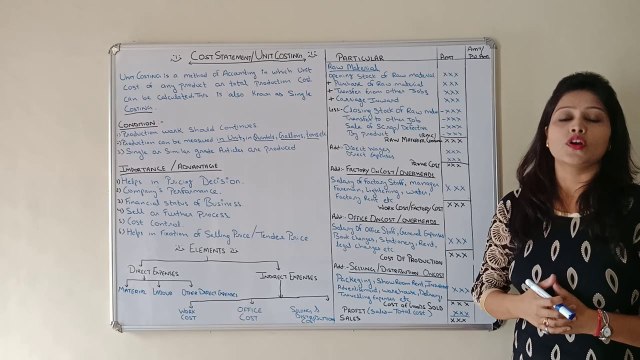 COST STATEMENT/UNIT COSTING
UNIT COSTING is a method of Accounting in which Unit
cost of any Product or total Production Cost
can be calculated. This is also known as Single
COSTING.
CONDITION
1) Production work should continues
2) Production can be measured in Units,
3) Single or Similar grade Articles are produced
IMPORTANCE / ADVANTAGE
1) Helps in Pricing Decision.
2) Company's Performance.
3) Financial Status of Business
4) Sell or Further Process
5) Cost Control
6) Helps in fixation of Selling Price/Tender Price
ELEMENTS
DIRECT EXPENSES
INDIRECT EXPENSES
MATERIAL LABOUR OTHER DIRECT EXPENSES
WORK COST
OFFICE COST
SELLING & DISTRIBUTION COST
PARTICULAR AMT AMT/
Raw Material
Opening Stock of Raw material xxx
+ Purchase of Raw material xxx
+ Transfer from other Jobs xxx
+ Carriage Inward xxx
Less - Closing Stock of Raw
Transfer to other Jobs xxx
Sale of Scrap/Defective xxx
By Product xxx
RAW MATERIAL xxx
Add - Direct wages xxx
Direct expenses xxx
PRIME COST xxx
Add - FACTORY ONCOST/OVERHEADS
Salary of Factory Staff, manager
Foreman, Lightning, water xxx
Factory Rent etc
WORK COST/FACTORY COST xxx
Add - OFFICE ONCOST/OVERHEADS
Salary of Office Staff, General Expenses
Bank Charges, Stationary, Rent, xxx
legal charges etc
COST OF PRODUCTION xxx
Add - SELLING/DISTRIBUTION ONCOST
Packaging, Show Room Rent, Insurance
Advertising, warehouse, Delivery xxx
Travelling Expenses etc
COST OF GOODS SOLD xxx
PROFIT (Sales - Total cost) xxx
SALES xxx